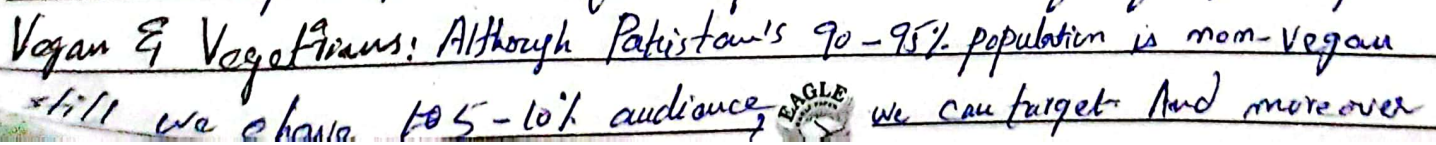 Vegan & Vegetarians: Although Pakistan's 90-95% population is non-vegan
still we have to 5-10% audiance, EAGLE we can target And moreover